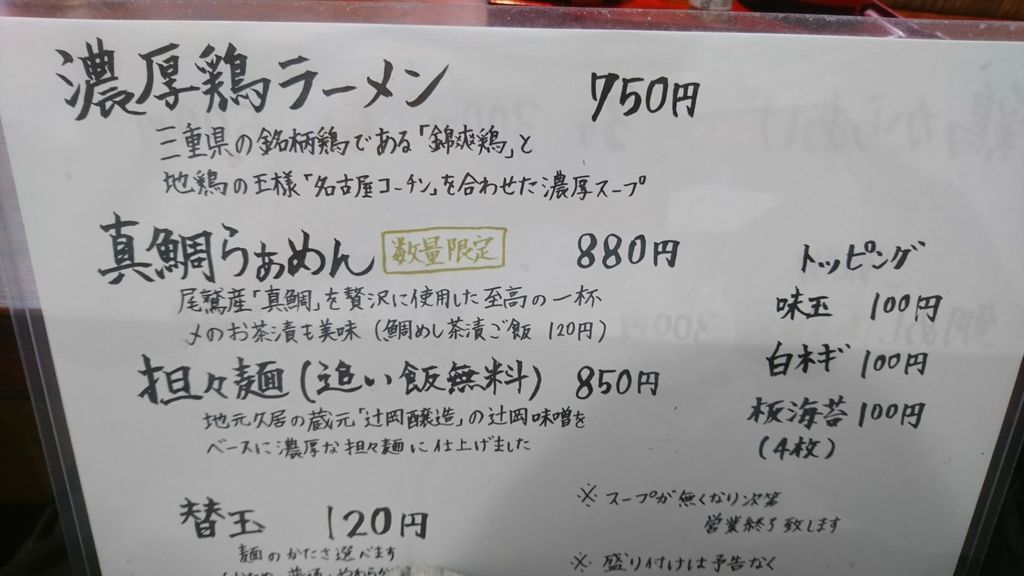 濃厚鶏ラーメン 750円
三重県の銘柄鶏である「錦爽鶏」と
地鶏の王様「名古屋コーチン」を合わせた濃厚スープ
真鯛らぁめん 数量限定 880円
尾鷲産「真鯛」を贅沢に使用した至高の一杯
〆のお茶漬も美味（鯛めし茶漬ご飯 120円）
担々麺(追い飯無料) 850円
地元久居の蔵元「辻岡醸造」の辻岡味噌を
ベースに濃厚な担々麺に仕上げました
替玉 120円
麺のかたさ選べます
トッピング
味玉 100円
白ネギ 100円
板海苔 100円
(4枚)
※スープが無くなり次第
営業終了致します
※盛り付けは予告なく